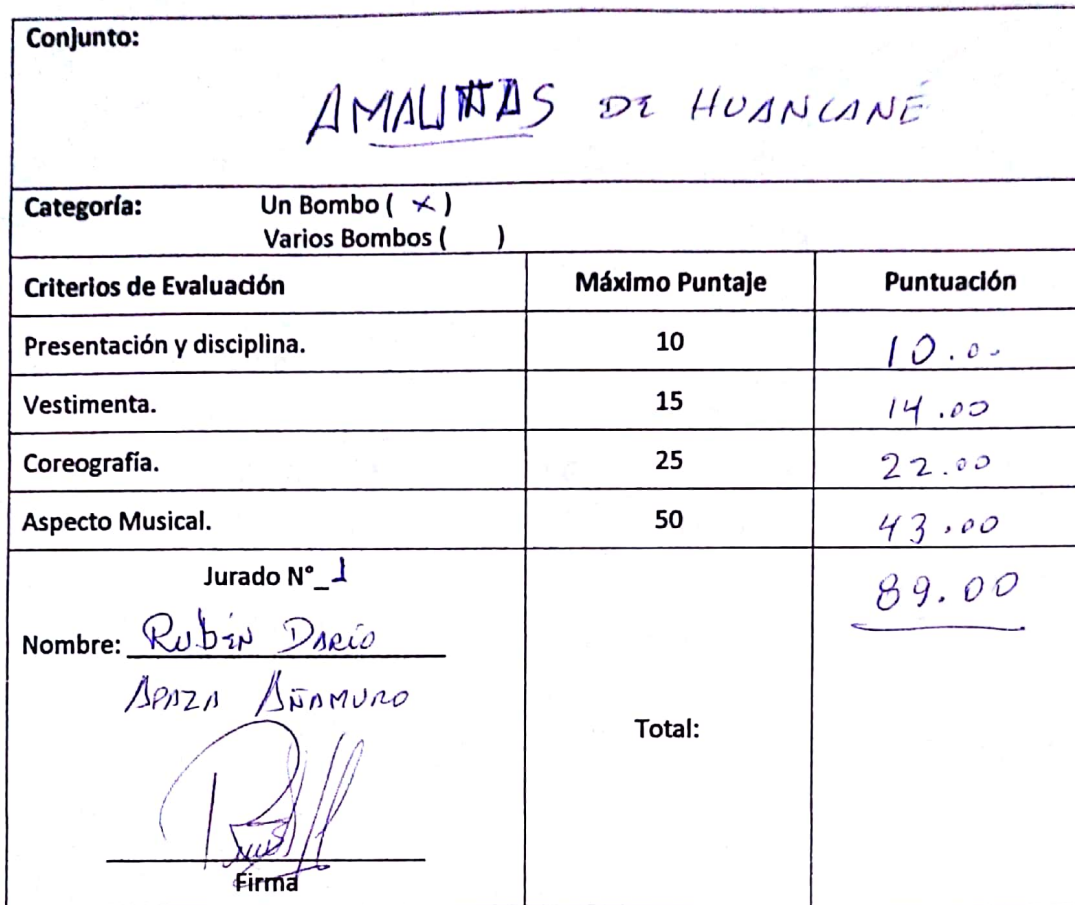 Conjunto:
AMAUTAS DE HUANCANÉ
Categoría: Un Bombo ( × )
Varios Bombos ( )
Criterios de Evaluación Máximo Puntaje Puntuación
Presentación y disciplina. 10 10.00
Vestimenta. 15 14.00
Coreografía. 25 22.00
Aspecto Musical. 50 43.00
Jurado N°_1
89.00
Nombre: Rubén Darío
APAZA AÑAMURO
Total:
Firma